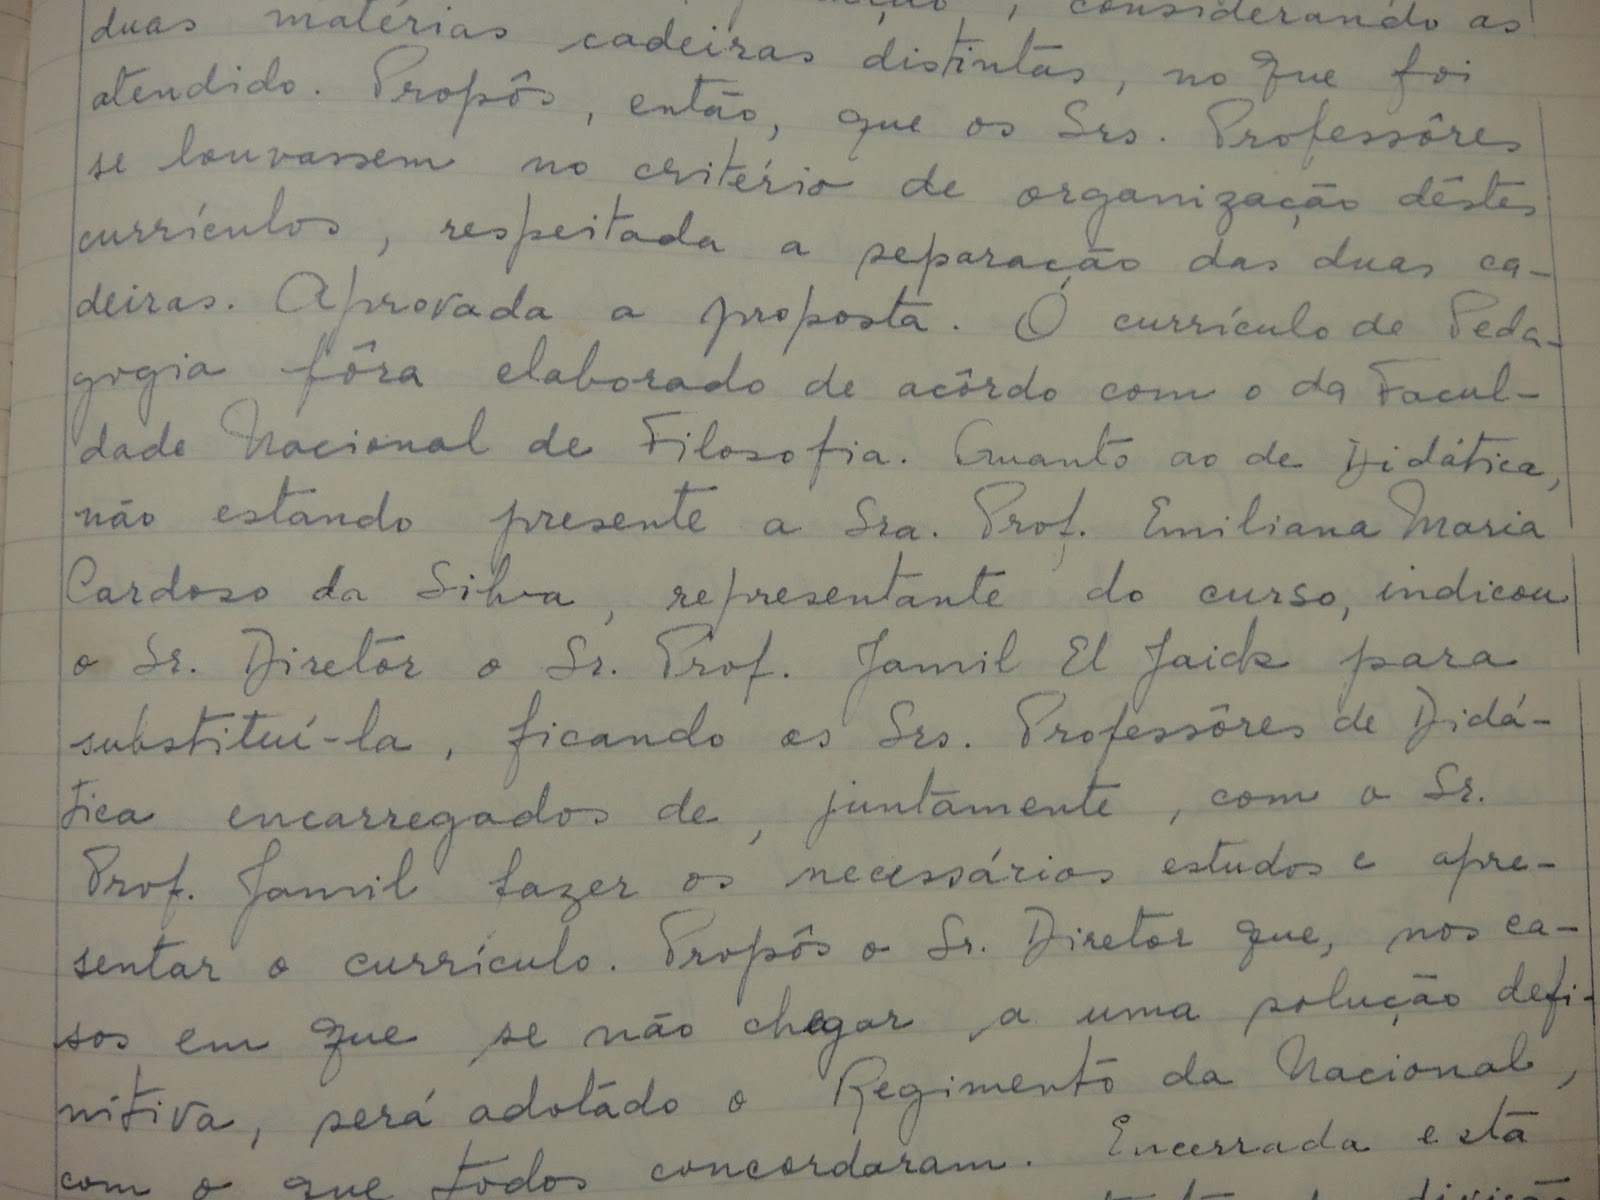 considerando as
duas matérias cadeiras distintas, no que foi
atendido. Propôs, então, que os Srs. Professôres
se louvassem no critério de organização dêstes
currículos, respeitada a separação das duas ca-
deiras. Aprovada a proposta. O currículo de Peda-
gogia fôra elaborado de acôrdo com o da Facul-
dade Nacional de Filosofia. Quanto ao de Didática,
não estando presente a Sra. Prof. Emiliana Maria
Cardoso da Silva, representante do curso, indicou
o Sr. Diretor o Sr. Prof. Jamil El Jaick para
substituí-la, ficando os Srs. Professôres de Didá-
tica encarregados de, juntamente, com o Sr.
Prof. Jamil fazer os necessários estudos e apre-
sentar o currículo. Propôs o Sr. Diretor que, nos ca-
sos em que se não chegar a uma solução defi-
nitiva, será adotado o Regimento da Nacional,
com o que todos concordaram. Encerrada esta